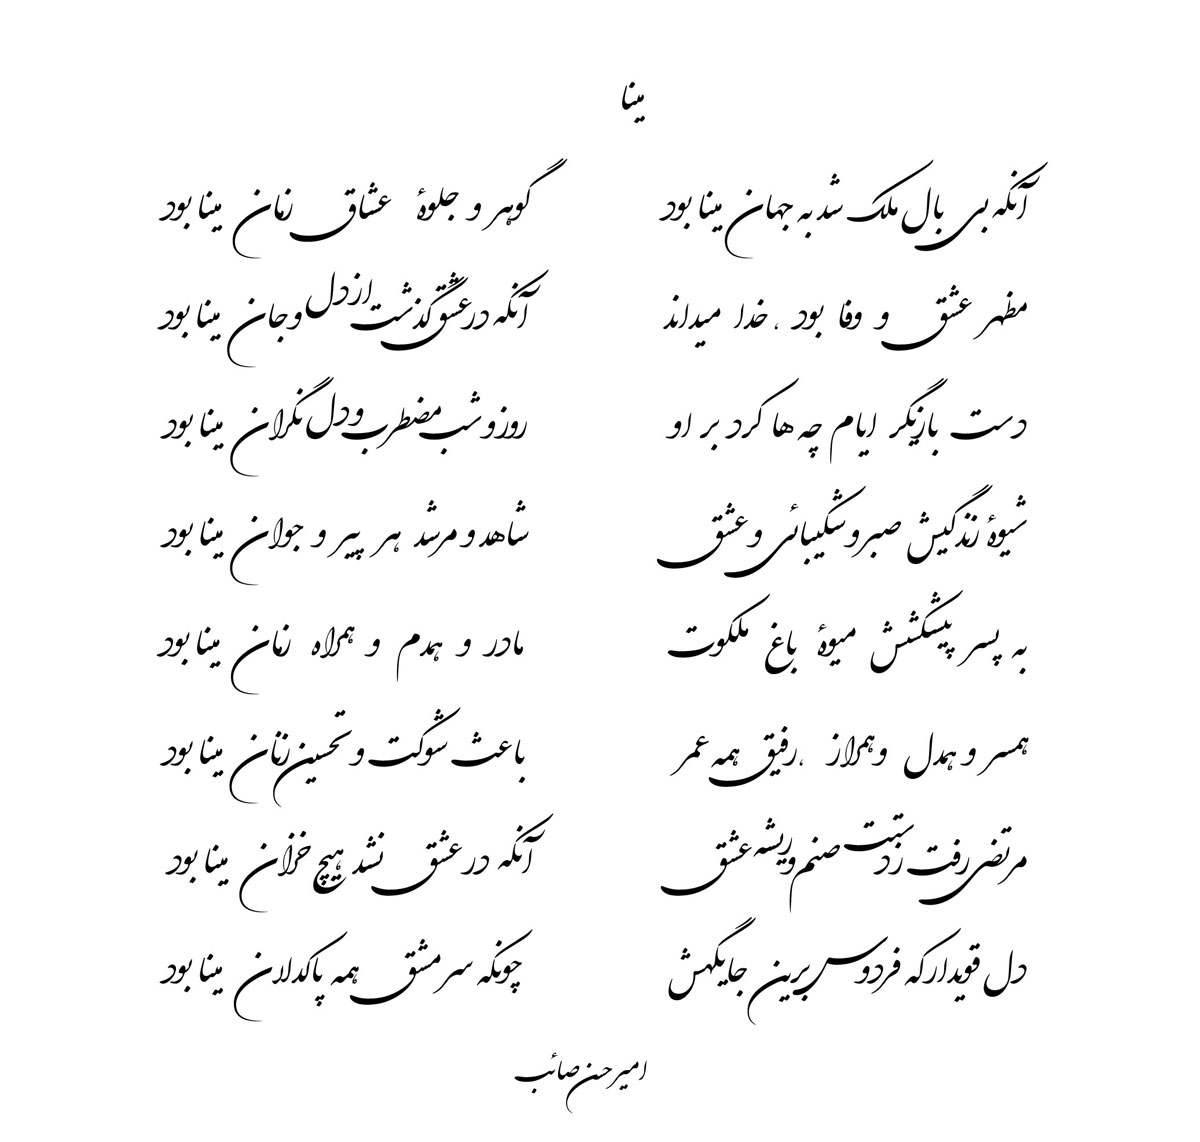 مینا
آنکه بی بال ملک شد به جهان مینا بود گوهر و جلوهٔ عشاق زمان مینا بود
مظهر عشق و وفا بود ، خدا میداند آنکه در عشق گذشت از دل و جان مینا بود
دست بازیگر ایام چه ها کرد بر او روز و شب مضطرب و دل نگران مینا بود
شیوهٔ زندگیش صبر و شکیبائی و عشق شاهد و مرشد هر پیر و جوان مینا بود
به پسر پیشکشش میوهٔ باغ ملکوت مادر و همدم و همراه زمان مینا بود
همسر و همدل و همراز ،رفیق همه عمر باعث شوکت و تحسین زنان مینا بود
مرتضی رفت ز دستت صنم و ریشه عشق آنکه در عشق نشد هیچ خزان مینا بود
دل قویدار که فردوس برین جایگهش چونکه سر مشق همه پاکدلان مینا بود
امیرحسن صائب